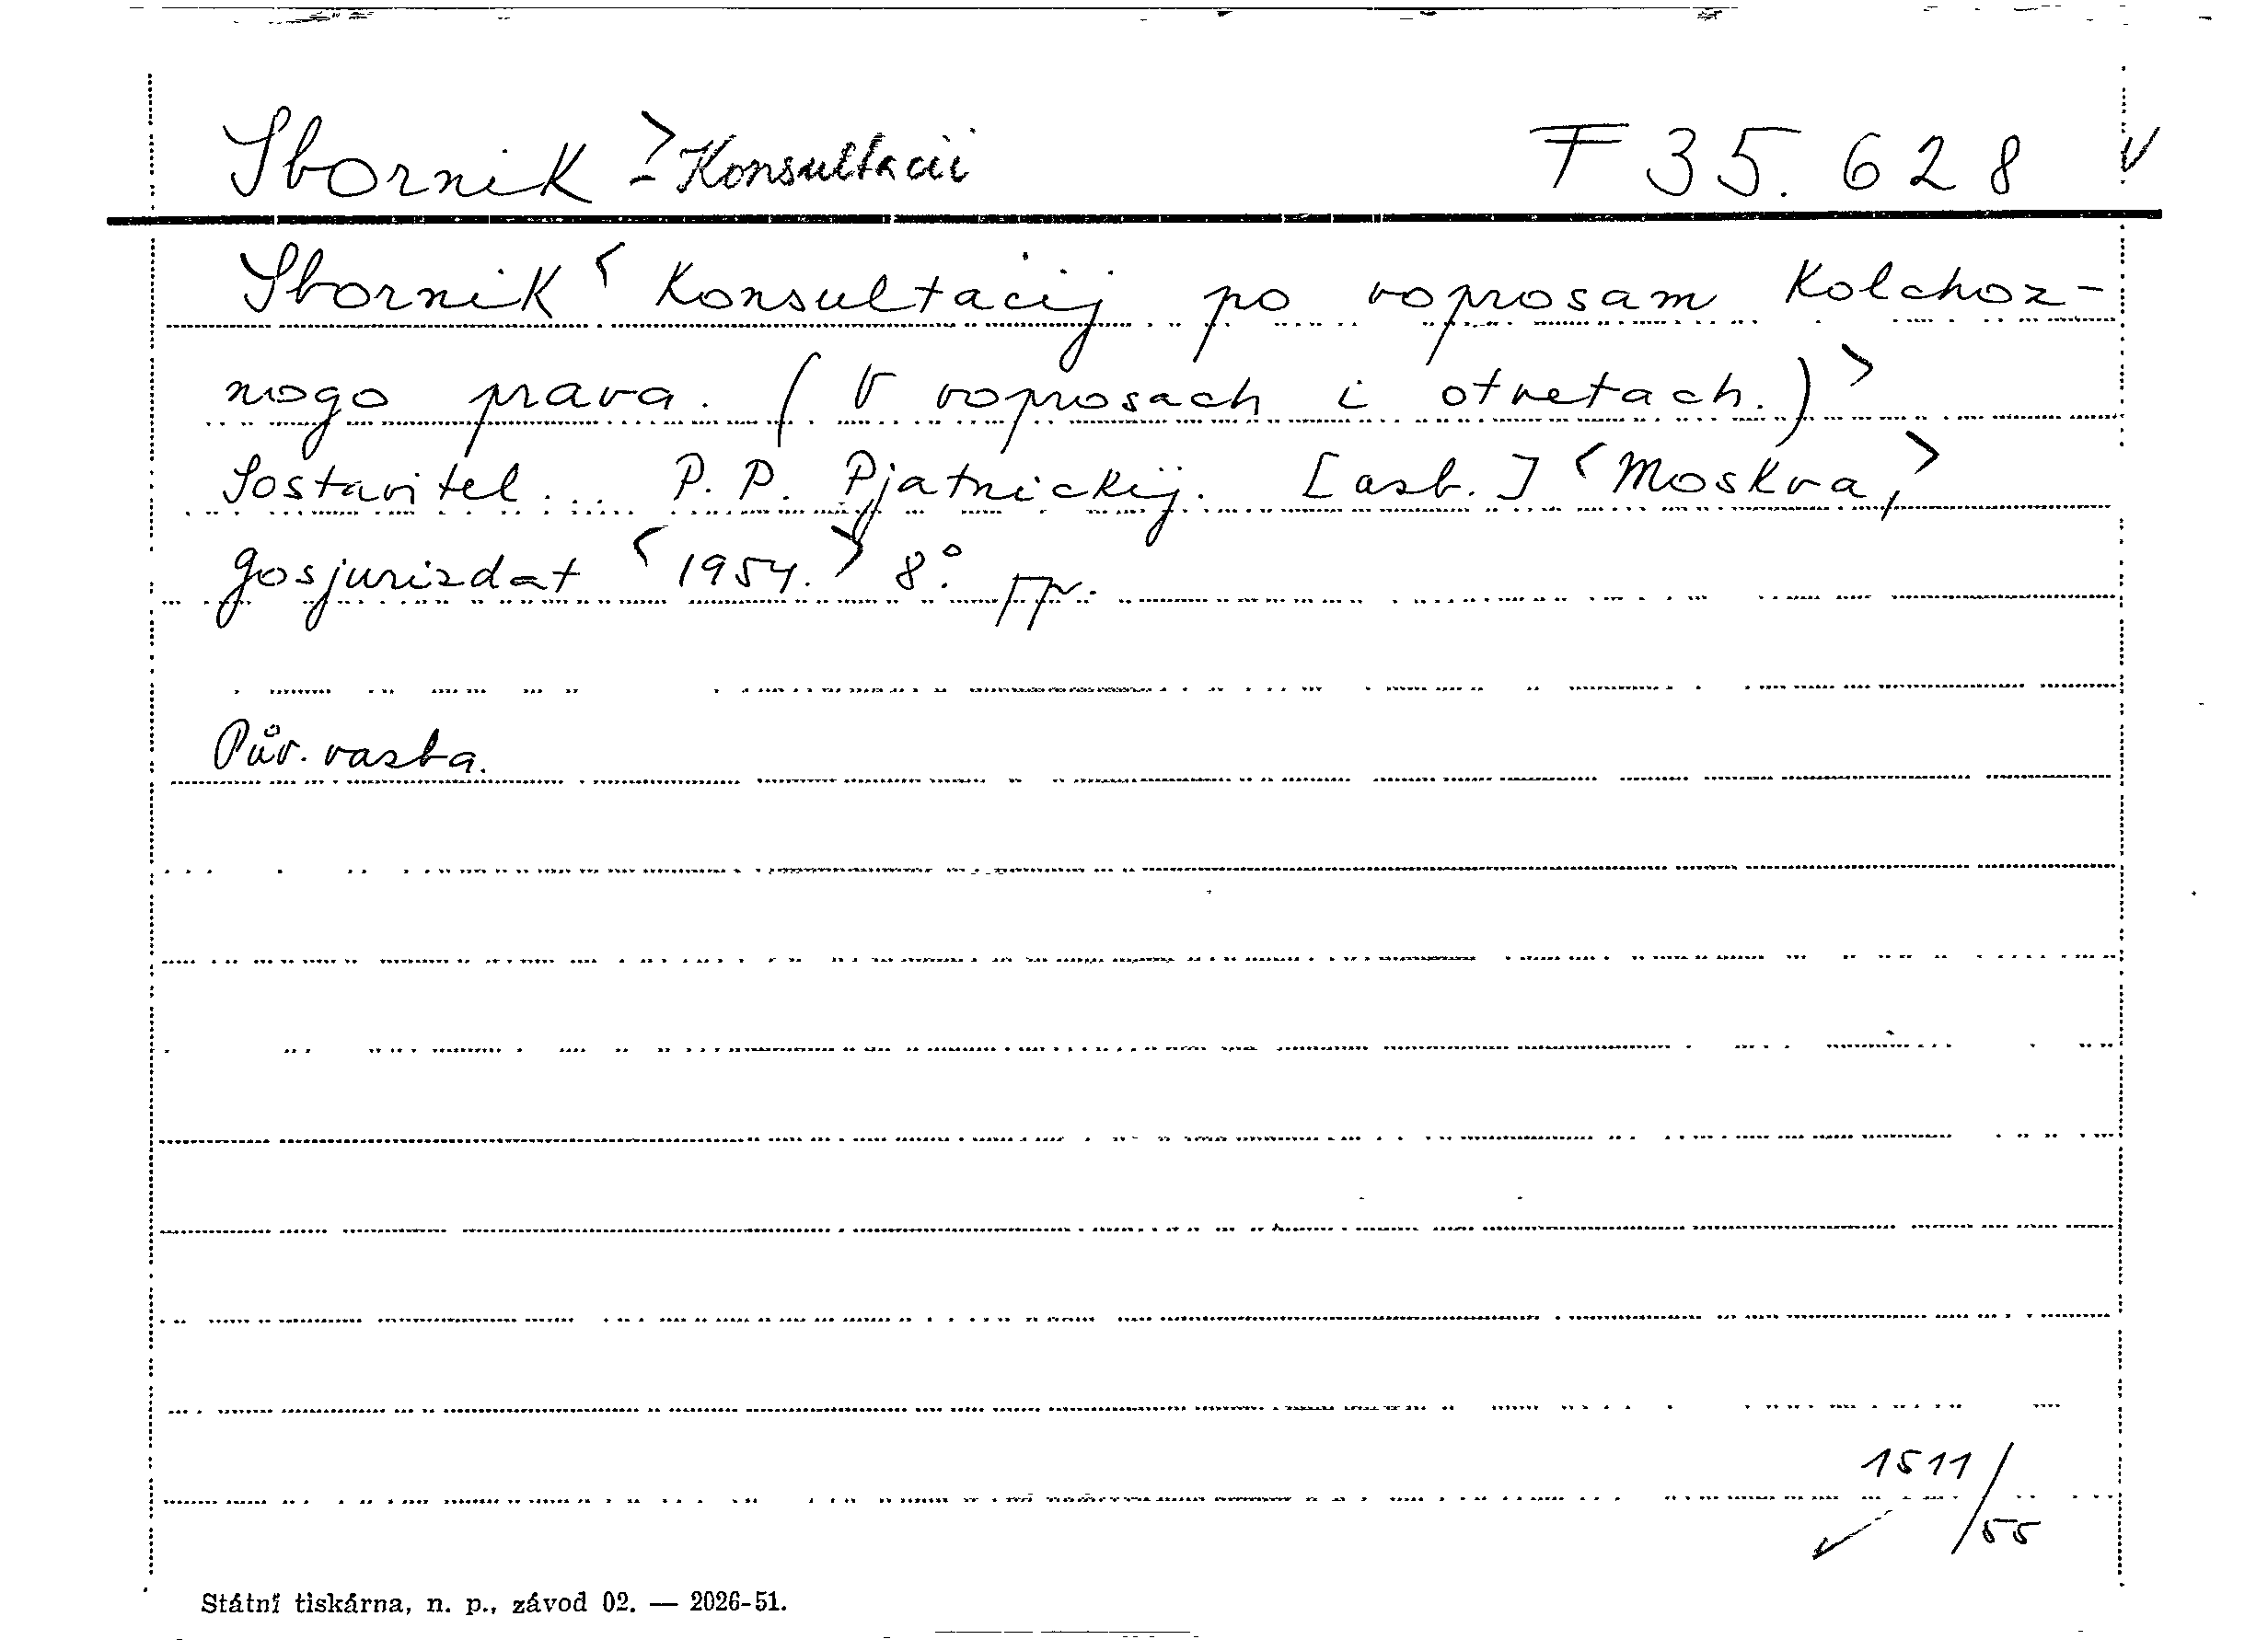 Sbornik > - Konsultacii F 35.628 V
Sbornik < Konsultacij po voprosam Kolchoz-
nogo prava. (V voprosach i otvetach.) >
Sostavitel... P. P. Pjatnickij. [asb.] < Moskva, >
gosjurizdat < 1954. > 8°. pp.
Pův. vazba.
1511/55
Státní tiskárna, n. p., závod 02. — 2026-51.